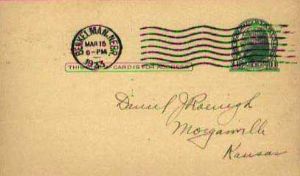 BENKELMAN, NEBR.
MAR 15
6-PM
1933
THIS SIDE OF CARD IS FOR ADDRESS
Daniel J Roenigk
Morganville
Kansas